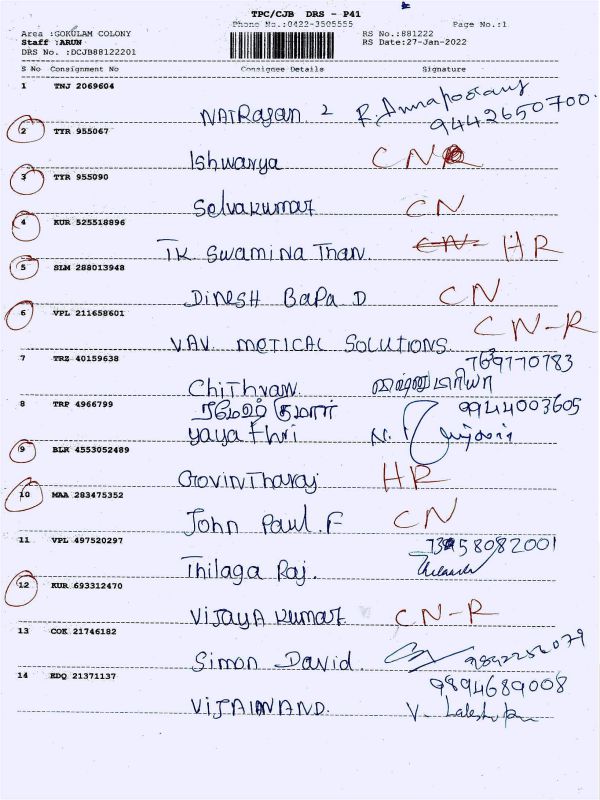 TPC/CJB DRS - P41
Phone No.:0422-3505555 Page No.:1
Area :GOKULAM COLONY RS No.:881222
Staff :ARUN RS Date:27-Jan-2022
DRS No. :DCJB88122201
S No Consignment No Consignee Details Signature
1 TNJ 2069604
NATRajan 2 R. Annapoorany
9442650700.
2 TYR 955067
Ishwarya CNR
3 TYR 955090
Selvakumar CN
4 KUR 525518896
TK Swamina Than. CN- HR
5 SLM 288013948
Dinesh BaPa D CN
6 VPL 211658601 CN-R
VAV. METICAL SOLUTIONS
7 TRZ 40159638
Chithran.
ரமேஷ் குமார் 9944003605
8 TRP 4966799
yaya thri N.
9 BLR 4553052489
Govintharaj HR
10 MAA 283475352
John Paul.F CN
11 VPL 497520297
Thilaga Raj.
12 KUR 693312470
Vijaya kumar CN-R
13 COK 21746182
Simon David.
14 EDQ 21371137 9894689008
VIJAIANAND. V.